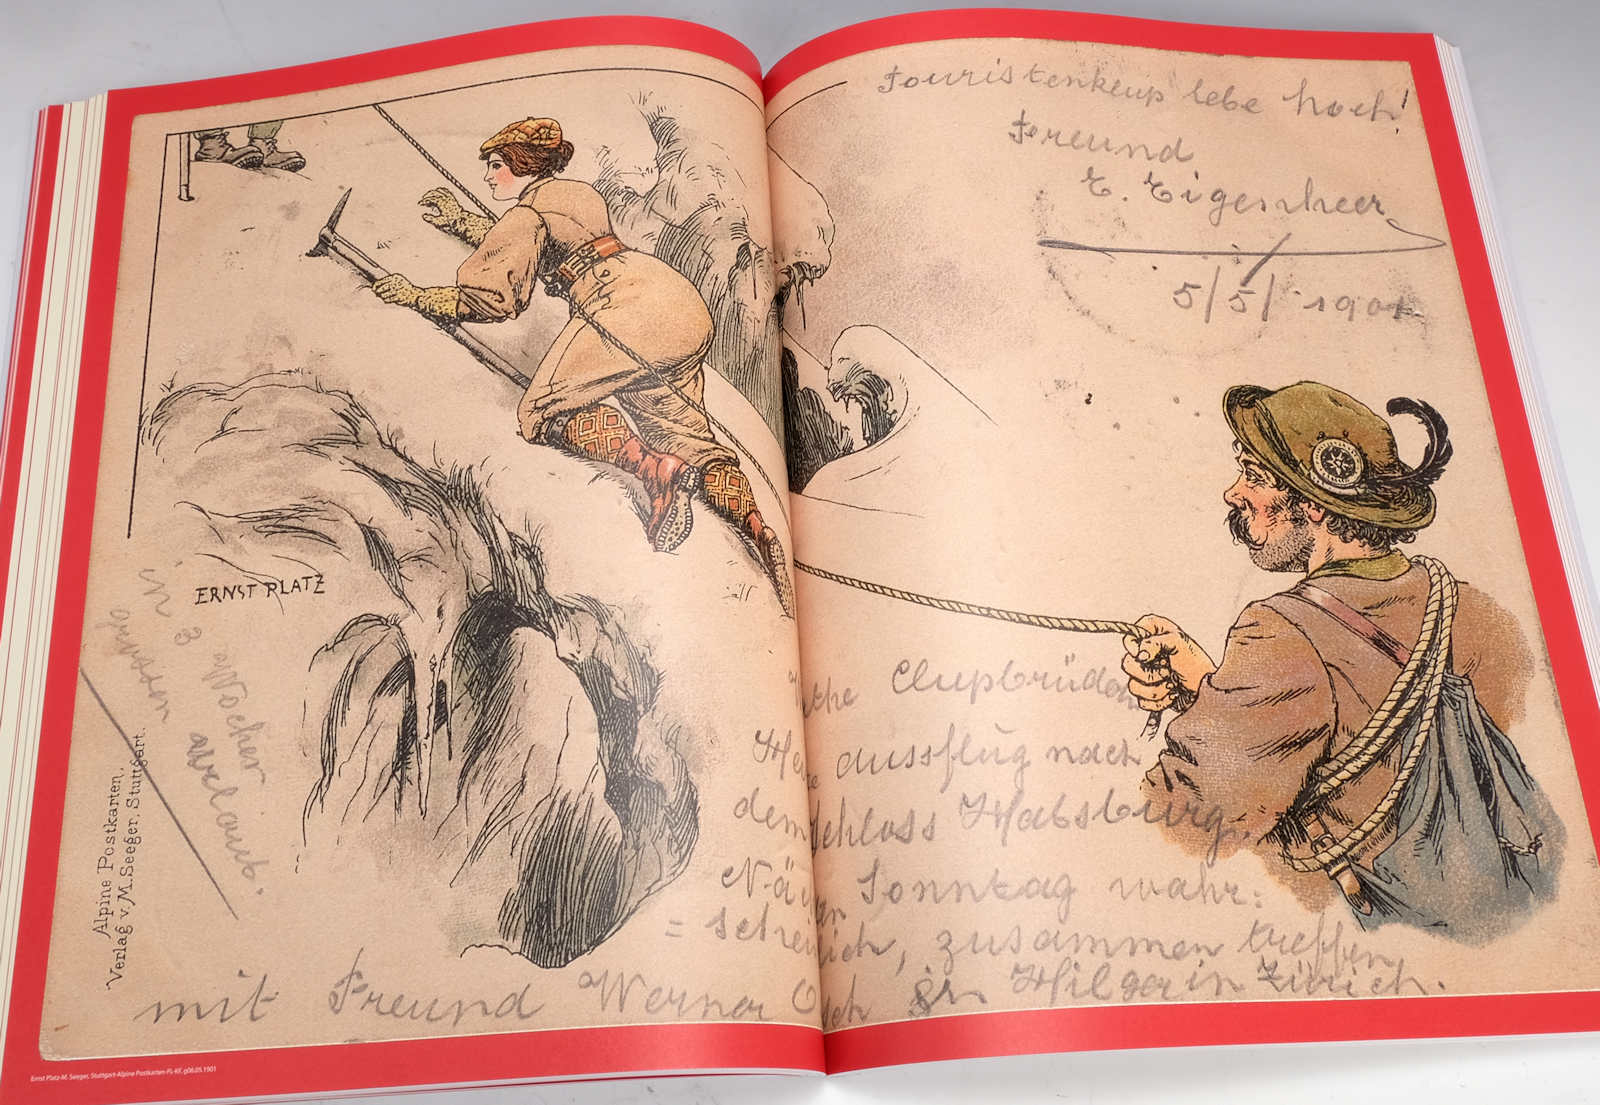 Touristenklup lebe hoch!
Freund
E. Eigenheer
5/5/ 1901
ERNST PLATZ
in 3 Wochen
Alpine Postkarten,
Verlag v. M. Seeger, Stuttgart.
Clupbrüder
ausflug nach
dem Schloss Habsburg.
Sonntag wahr:
= schei lich, zusammen treffen
mit Freund Werner in Zürich.
Ernst Platz-M. Seeger, Stuttgart-Alpine Postkarten-PL-KF, g06.05.1901